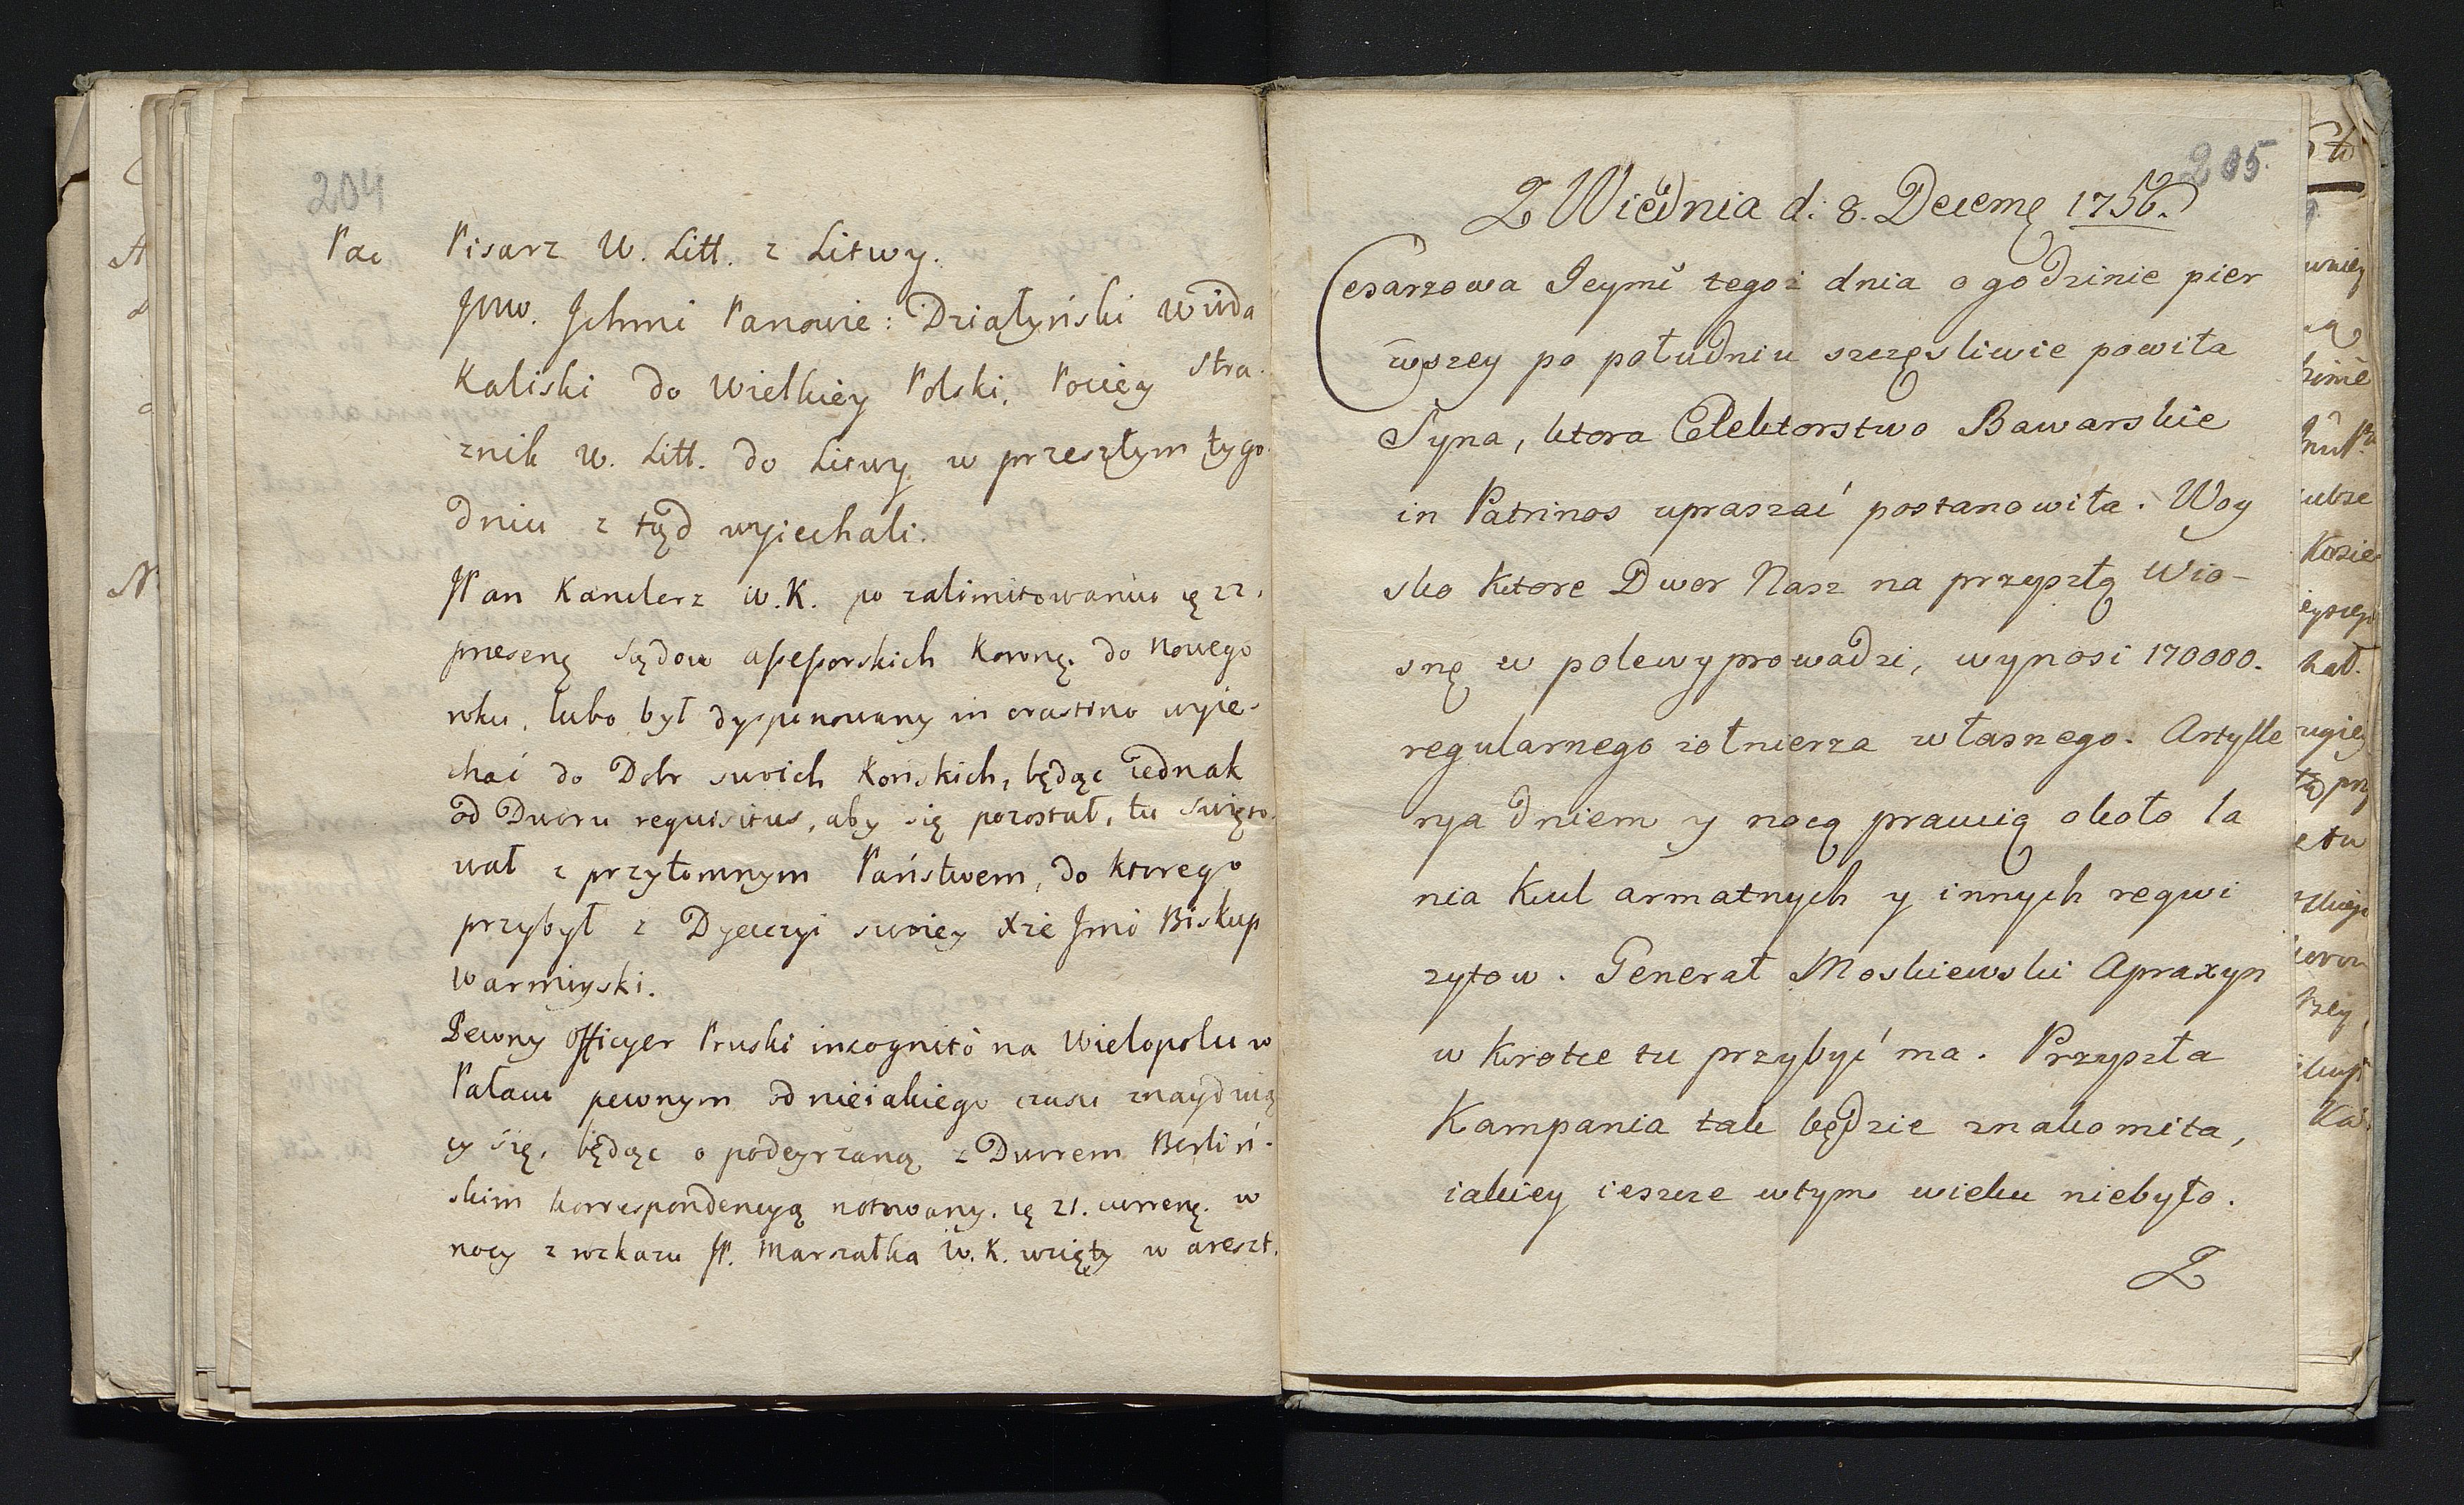 204
Pac Pisarz W. Litt. z Litwy.
JWW. Ichmć Panowie: Działyński Wwda
Kaliski do Wielkiey Polski, Pociey Stra-
znik W. Litt. do Litwy w przeszłym tygo-
dniu z tąd wyiechali.
JPan Kanclerz W. K. po zalimitowaniu ę 22.
presenę Sądow assessorskich Koronę. do Nowego
roku, lubo był dysponowany in crastino wyie-
chać do Dobr swoich Końskich, będąc iednak
od Dworu requisitus, aby się pozostał, tu Swięto-
wał z przytomnym Państwem, do ktorego
przybył z Dyecezyi swoiey Xże Jmć Biskup
Warmiyski.
Pewny Officyer Pruski incognitò na Wielopolu w
Pałacu pewnym od nieiakiego czasu znayduią
cy się, będąc o podeyrzaną z Dworem Berliń-
skim korrespondencyą notowany, ę 21. currenę. w
nocy z rozkazu JP. Marszałka W. K. wzięty w areszt.
205.
Z Wiednia d: 8. Decemę 1756.
Cesarzowa Jeymć tegoż dnia o godzinie pier
wszey po południu szczęsliwie powiła
Syna, ktora Elektorstwo Bawarskie
in Patrinos upraszać postanowiła. Woy
sko ktore Dwor Nasz na przyszłą Wio-
snę w pole wyprowadzi, wynosi 170000.
regularnego zołnierza własnego. Artylle
rya dniem y nocą pracuią około la
nia Kul armatnych y innych reqwi
zytow. Generał Moskiewski Apraxyn
w krotce tu przybyć ma. Przyszła
Kampania tak będzie znakomita,
iakiey ieszcze w tym wieku niebyło.
Z